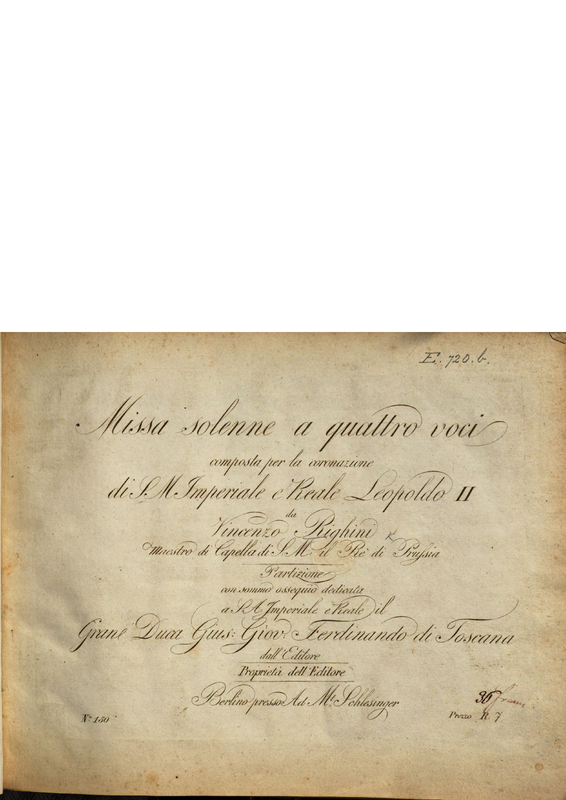 E. 720. b.
Missa solenne a quattro voci
composta per la coronazione
di S. M. Imperiale e Reale Leopoldo II
da
Vincenzo Righini
Maestro di Capella di S. M. il Rè di Prussia
Partizione
con sommo ossequio dedicata
a S. A. Imperiale e Reale il
Gran Duca Gius: Giov: Ferdinando di Toscana
dall'Editore
Proprietà dell'Editore
Berlino presso Ad. Mt. Schlesinger
No. 150
36
Prezzo R. 7